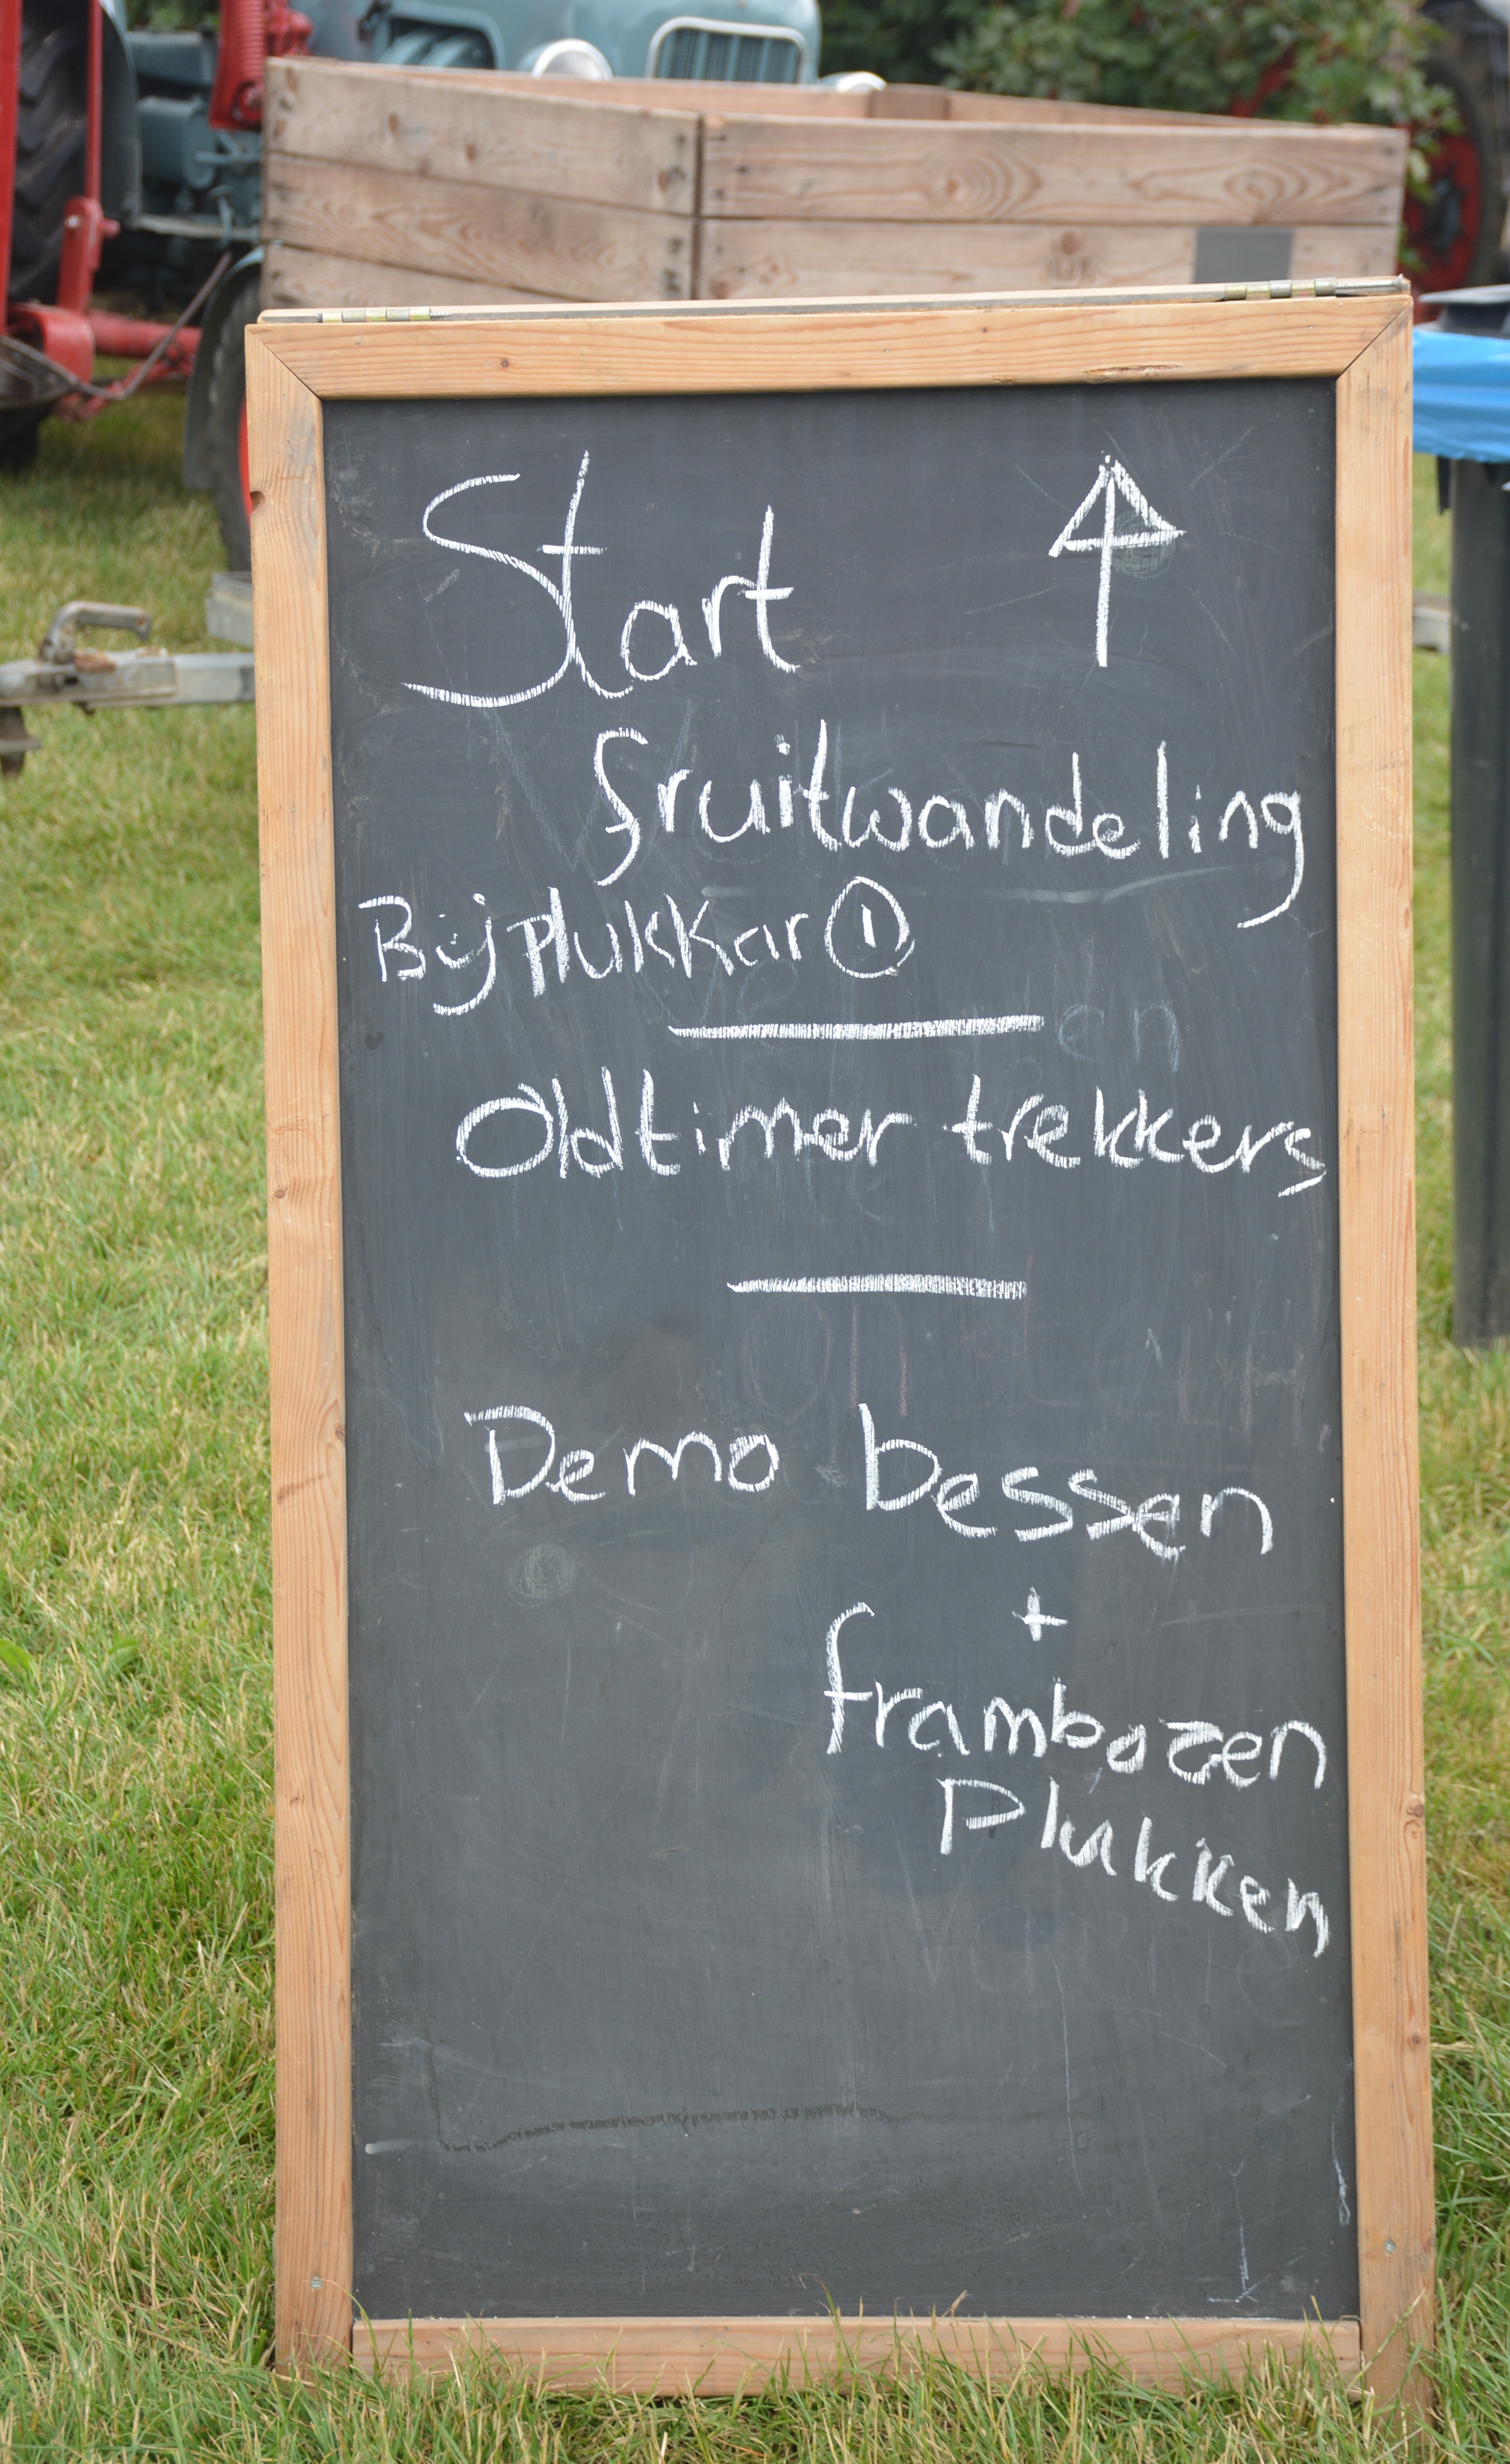 Start ↑
fruitwandeling
Bij plukkar ①
Oldtimer trekkers
Demo bessen
+
frambozen
Plukken